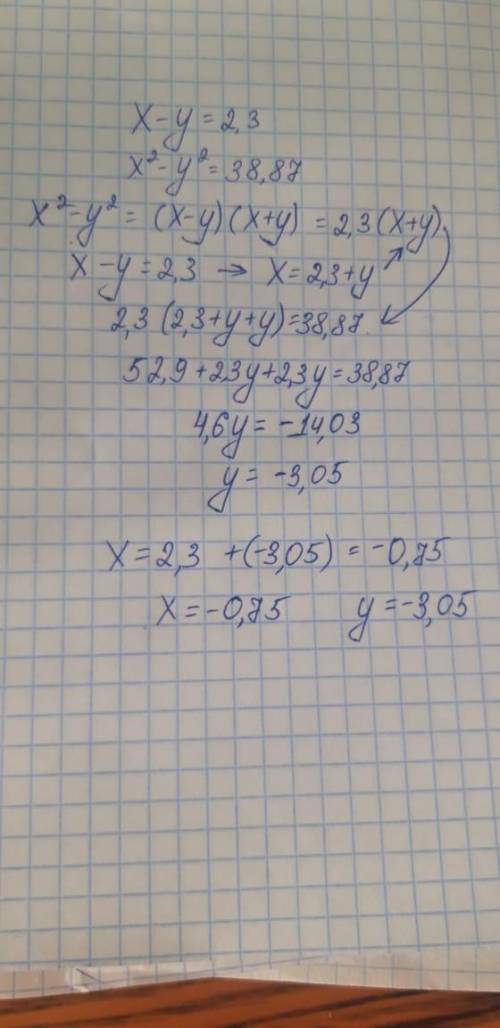 x-y=2,3
x²-y²=38,87
x²-y²= (x-y)(x+y) = 2,3(x+y)
x-y=2,3 → x=2,3+y
2,3(2,3+y+y)=38,87
52,9+2,3y+2,3y=38,87
4,6y= -14,03
y= -3,05
x=2,3 +(-3,05) = -0,75
x=-0,75 y=-3,05